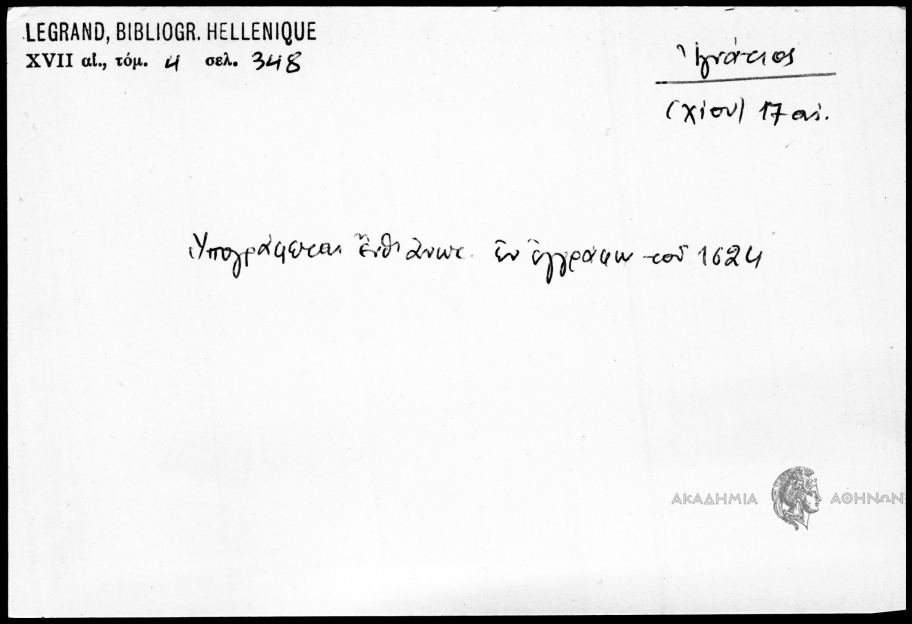 LEGRAND, BIBLIOGR. HELLENIQUE
XVII αἰ., τόμ. 4 σελ. 348
Ἰγνάτιος
(Χίου) 17 αἰ.
Ὑπογράφεται ἐν ἐγγράφῳ τοῦ 1624
ΑΚΑΔΗΜΙΑ ΑΘΗΝΩΝ